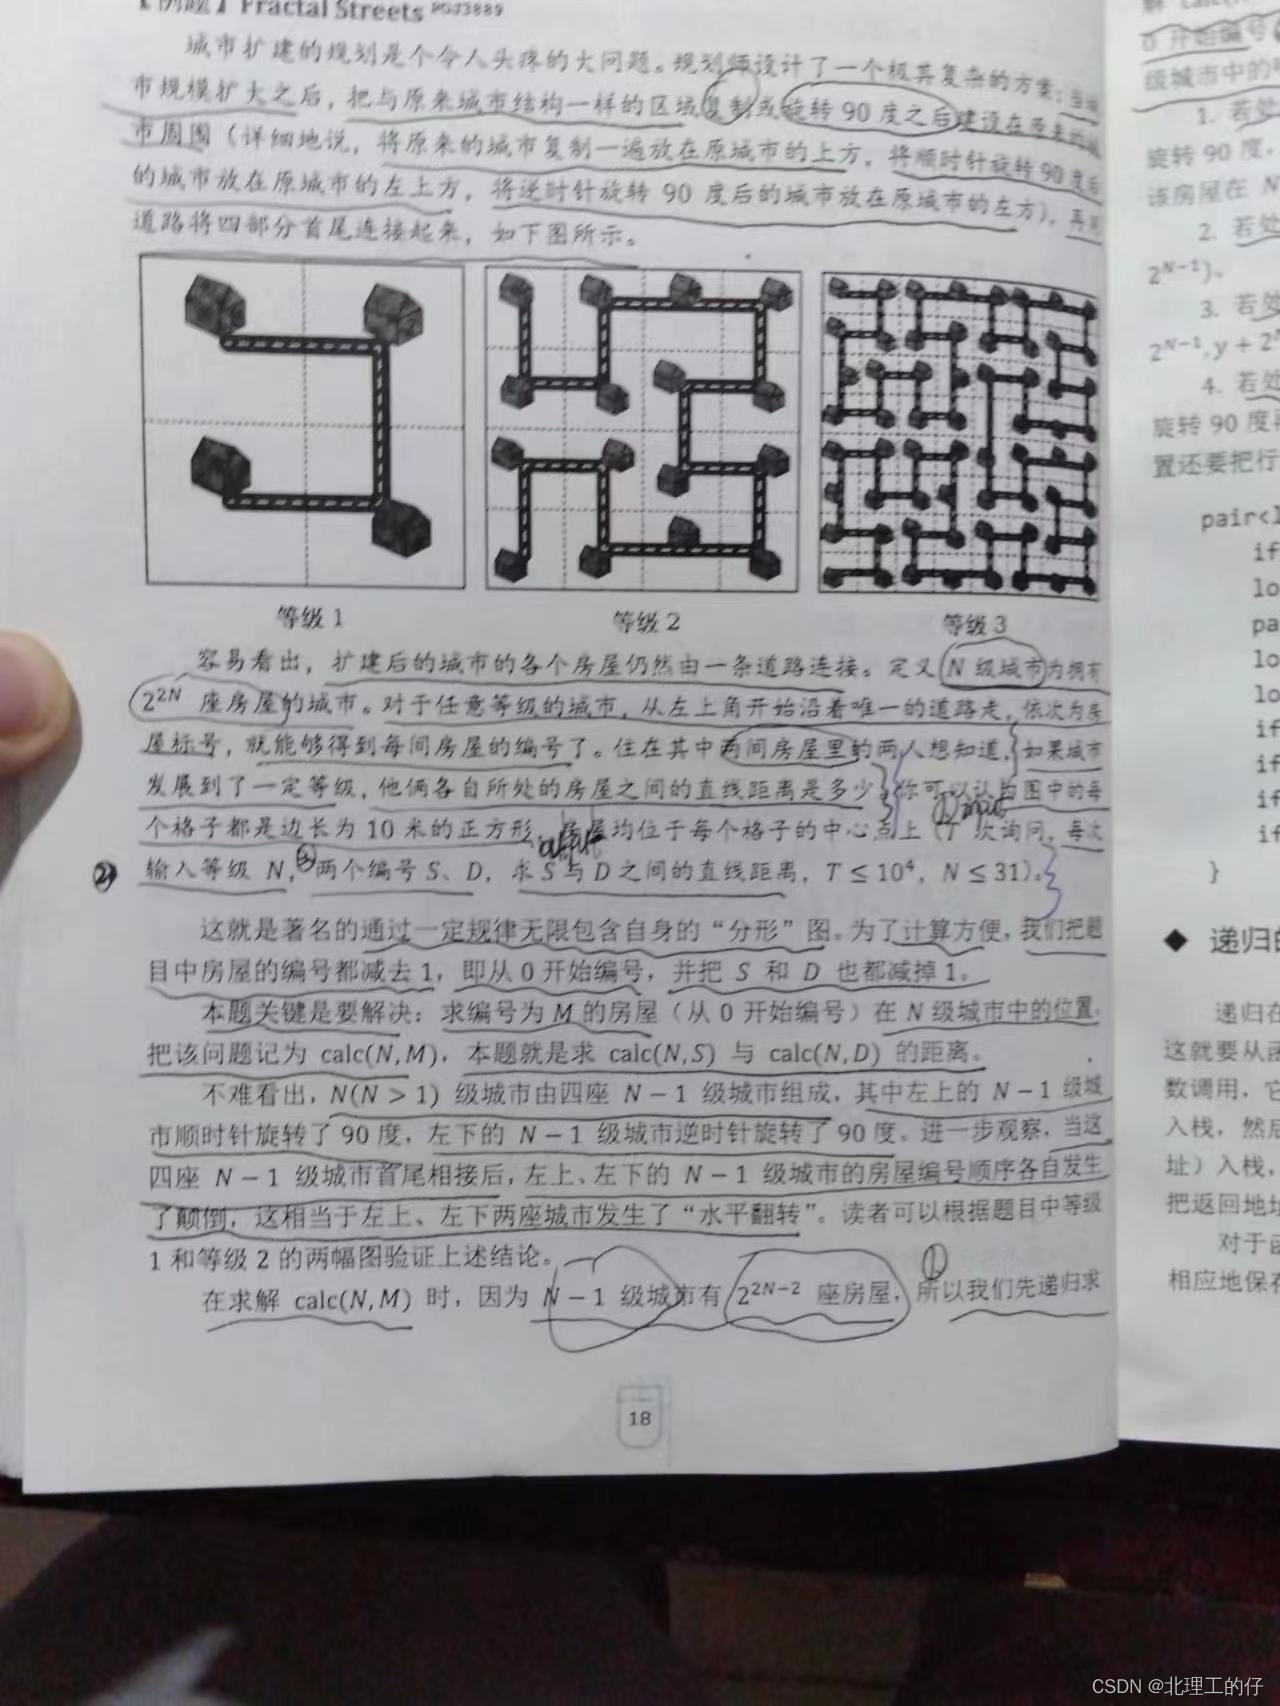 【例题】Fractal Streets POJ3889
城市扩建的规划是个令人头疼的大问题。规划师设计了一个极其复杂的方案：当城
市规模扩大之后，把与原来城市结构一样的区域复制或旋转 90 度之后建设在原来的城
市周围（详细地说，将原来的城市复制一遍放在原城市的上方，将顺时针旋转 90 度后
的城市放在原城市的左上方，将逆时针旋转 90 度后的城市放在原城市的左方），再用
道路将四部分首尾连接起来，如下图所示。
等级 1
等级 2
等级 3
容易看出，扩建后的城市的各个房屋仍然由一条道路连接。定义 N 级城市为拥有
2^{2N} 座房屋的城市。对于任意等级的城市，从左上角开始沿着唯一的道路走，依次为房
屋标号，就能够得到每间房屋的编号了。住在其中两间房屋里的两人想知道，如果城市
发展到了一定等级，他俩各自所处的房屋之间的直线距离是多少。你可以认为图中的每
个格子都是边长为 10 米的正方形，房屋均位于每个格子的中心点上（T 次询问，每次
② 输入等级 N，③两个编号 S、D，求 S 与 D 之间的直线距离，T ≤ 10^4，N ≤ 31）。
这就是著名的通过一定规律无限包含自身的“分形”图。为了计算方便，我们把题
目中房屋的编号都减去 1，即从 0 开始编号，并把 S 和 D 也都减掉 1。
本题关键是要解决：求编号为 M 的房屋（从 0 开始编号）在 N 级城市中的位置。
把该问题记为 calc(N, M)，本题就是求 calc(N, S) 与 calc(N, D) 的距离。
不难看出，N(N > 1) 级城市由四座 N − 1 级城市组成，其中左上的 N − 1 级城
市顺时针旋转了 90 度，左下的 N − 1 级城市逆时针旋转了 90 度。进一步观察，当这
四座 N − 1 级城市首尾相接后，左上、左下的 N − 1 级城市的房屋编号顺序各自发生
了颠倒，这相当于左上、左下两座城市发生了“水平翻转”。读者可以根据题目中等级
1 和等级 2 的两幅图验证上述结论。
①
在求解 calc(N, M) 时，因为 N − 1 级城市有 2^{2N−2} 座房屋，所以我们先递归求
18
0 开始编号
级城市中的
1. 若处
旋转 90 度，
该房屋在 N
2. 若处
2^{N−1})。
3. 若处
2^{N−1}, y + 2
4. 若处
旋转 90 度
置还要把行
pair<
if
lo
pa
lo
lo
if
if
if
if
}
◆ 递归的
递归在
这就要从函
数调用，它
入栈，然后
址）入栈，
把返回地址
对于函
相应地保存
CSDN @北理工的仔